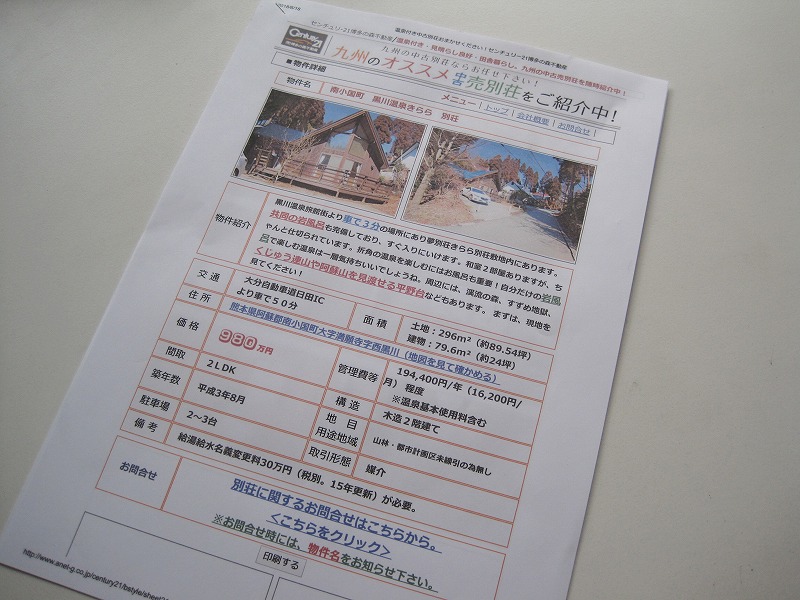 温泉付き中古別荘おまかせください！センチュリー21博多の森不動産
センチュリー21博多の森不動産/温泉付き・見晴らし良好・田舎暮らし。九州の中古売別荘を随時紹介中！
Century 21
九州の中古別荘ならお任せ下さい！
九州のオススメ中古売別荘をご紹介中！
メニュー｜トップ｜会社概要｜お問合せ｜
■物件詳細
物件名 南小国町 黒川温泉きらら 別荘
物件紹介
黒川温泉旅館街より車で３分の場所にあり夢別荘きらら別荘敷地内にあります。
共同の岩風呂も完備しており、すぐ入りにいけます。和室２部屋ありますが、ち
ゃんと仕切られています。折角の温泉を楽しむにはお風呂も重要！自分だけの岩風
呂で楽しむ温泉は一層気持ちいいでしょうね。周辺には、渓流の森、すずめ地獄、
くじゅう連山や阿蘇山を見渡せる平野台などもあります。 まずは、現地を
見てください！
交通 大分自動車道日田IC
より車で５０分
面積 土地：296m²（約89.54坪）
建物：79.6m²（約24坪）
住所 熊本県阿蘇郡南小国町大字満願寺字西黒川（地図を見て確かめる）
価格 980万円
管理費等 194,400円/年（16,200円/
月） 程度
※温泉基本使用料含む
間取 ２LDK
構造 木造２階建て
築年数 平成3年8月
地目
用途地域 山林・都市計画区未線引の為無し
駐車場 2～3台
取引形態 媒介
備考 給湯給水名義変更料30万円（税別。15年更新）が必要。
お問合せ
別荘に関するお問合せはこちらから。
＜こちらをクリック＞
※お問合せ時には、物件名をお知らせ下さい。
印刷する